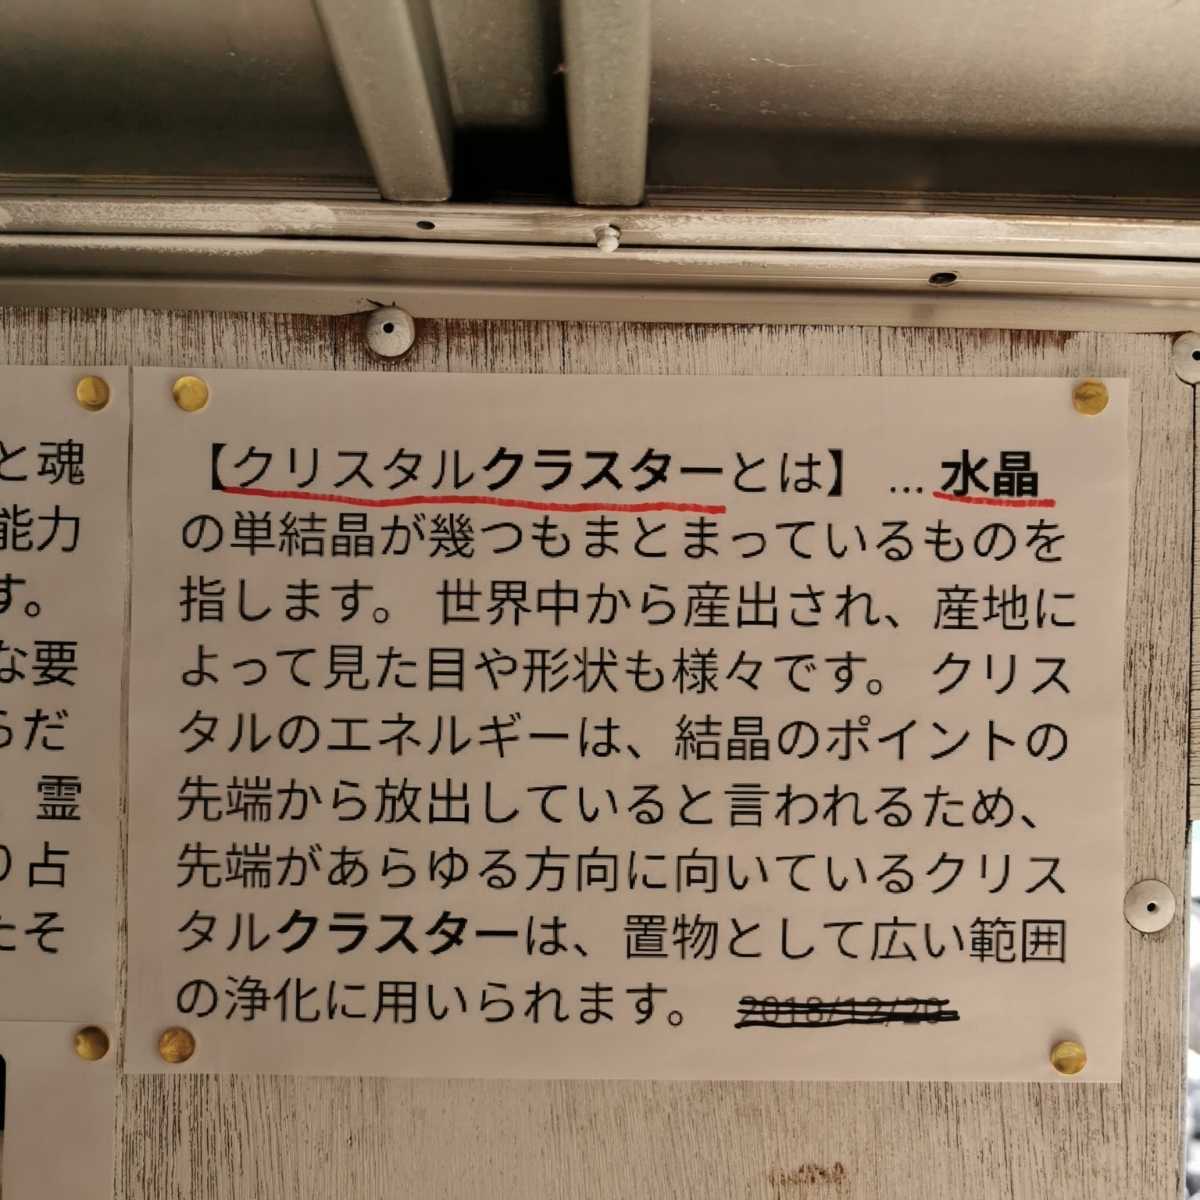 と魂
能力
す。
な要
らだ
霊
り占
たそ
【クリスタルクラスターとは】 ... 水晶
の単結晶が幾つもまとまっているものを
指します。 世界中から産出され、産地に
よって見た目や形状も様々です。 クリス
タルのエネルギーは、結晶のポイントの
先端から放出していると言われるため、
先端があらゆる方向に向いているクリス
タルクラスターは、置物として広い範囲
の浄化に用いられます。 2018/12/20